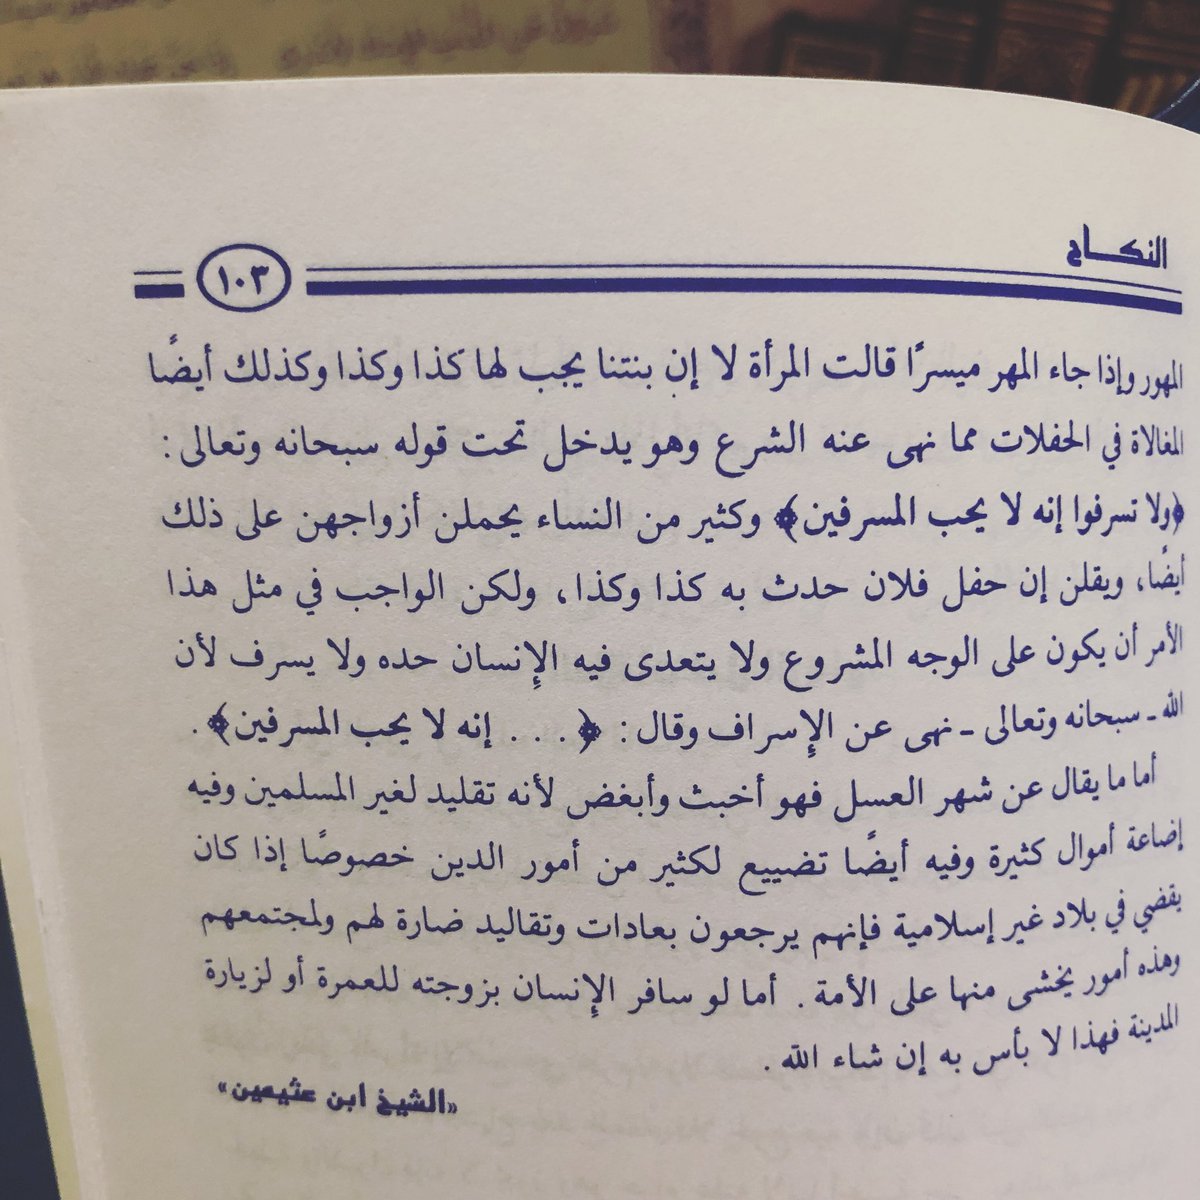 النكاح
١٠٣
المهور وإذا جاء المهر ميسرًا قالت المرأة لا إن بنتنا يجب لها كذا وكذا وكذلك أيضًا
المغالاة في الحفلات مما نهى عنه الشرع وهو يدخل تحت قوله سبحانه وتعالى :
﴿ولا تسرفوا إنه لا يحب المسرفين﴾ وكثير من النساء يحملن أزواجهن على ذلك
أيضًا، ويقلن إن حفل فلان حدث به كذا وكذا، ولكن الواجب في مثل هذا
الأمر أن يكون على الوجه المشروع ولا يتعدى فيه الإنسان حده ولا يسرف لأن
الله ـ سبحانه وتعالى ـ نهى عن الإسراف وقال : ﴿ . . . إنه لا يحب المسرفين﴾ .
أما ما يقال عن شهر العسل فهو أخبث وأبغض لأنه تقليد لغير المسلمين وفيه
إضاعة أموال كثيرة وفيه أيضًا تضييع لكثير من أمور الدين خصوصًا إذا كان
يقضي في بلاد غير إسلامية فإنهم يرجعون بعادات وتقاليد ضارة لهم ولمجتمعهم
وهذه أمور يخشى منها على الأمة . أما لو سافر الإنسان بزوجته للعمرة أو لزيارة
المدينة فهذا لا بأس به إن شاء الله .
«الشيخ ابن عثيمين»